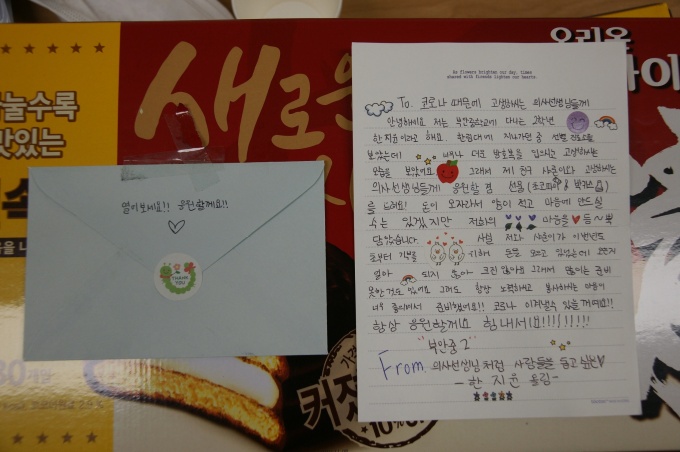 새로운
우리쌀
누룩
맛있는
열어보세요!! 응원할게요!!
THANK YOU
As flowers brighten our day, times
shared with friends lighten our hearts.
To. 코로나 때문에 고생하시는 의사선생님들께
안녕하세요 저는 부안중학교에 다니는 2학년
한지운이라고 해요. 한림대에 지나가던 중 선별 진료소를
보았는데 너무나 더운 방호복을 입으시고 고생하시는
모습을 보았어요. 그래서 제 친구 와 고생하시는
의사선생님들께 응원할 겸 선물(초코파이, 박카스)
을 드려요! 돈이 모자라서 양이 적고 마음에 안드실
수는 있겠지만 저희의 마음을 듬~뿍
담았습니다. 사실 저와 이번년도
초부터 기부를 하려 돈을 모으고 있었는데 모은지
얼마 되지 않아 크진 않아요 그래서 많이는 준비
못한것도 있어요 그래도 항상 노력하고 봉사하는 마음이
너무 준비했어요!! 코로나 이겨낼수 있을 거에요!!
항상 응원할게요 힘내세요!!!!!!!!!
"부안중 2"
From. 의사선생님처럼 사람들을 돕고 싶은
-한지운 올림-
커졌
10%